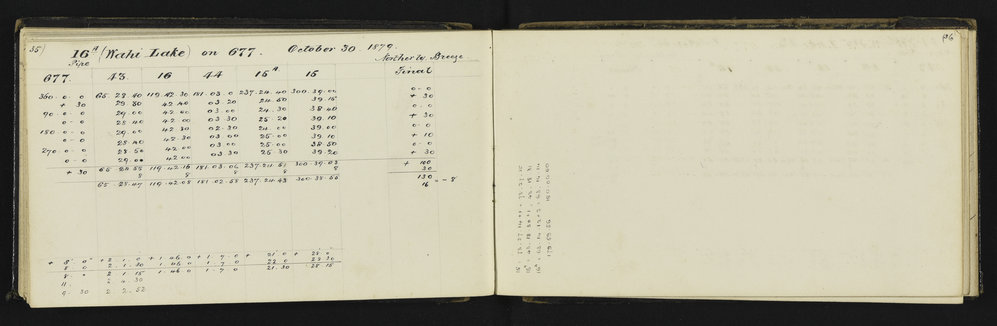 35)
16 A (Wahi Lake) on 677. October 30. 1879.
Pipe Northerly Breeze
677. 43. 16 44 15 A 15 Final
360.0.0 65.28.40 119.42.30 181.03.0 237.24.40 300.39.00 0-0
+ 30 29.50 42.40 03.20 24.50 39.15 + 30
90.0.0 29.00 42.00 03.00 24.30 38.40 0-0
0-0 28.40 42.00 03.30 25.20 39.10 + 30
180.0-0 29.00 42.30 02.30 24.00 39.00 0-0
0-0 28.40 42.30 03.00 25.00 39.10 + 10
270.0-0 28.50 42.00 03.00 25.00 38.50 0-0
0-0 29.00 42.00 03.30 25.30 39.20 + 30
+ 30 65.28.55 119.42.16 181.03.06 237.24.51 300.39.03 + 100
8 8 8 8 8 30
65.28.47 119.42.08 181.02.58 237.24.43 300.38.55 130
16 = - 8
+ 8.0 + 2.1.0 + 1.46.0 + 1.7.0 + 21.0 + 28.0
8.0 2.1.30 1.46.0 1.7.0 22.0 28.30
8.0 2.1.15 1.46.0 1.7.0 21.30 28.15
11. 2.4.30
9.30 2.2.52